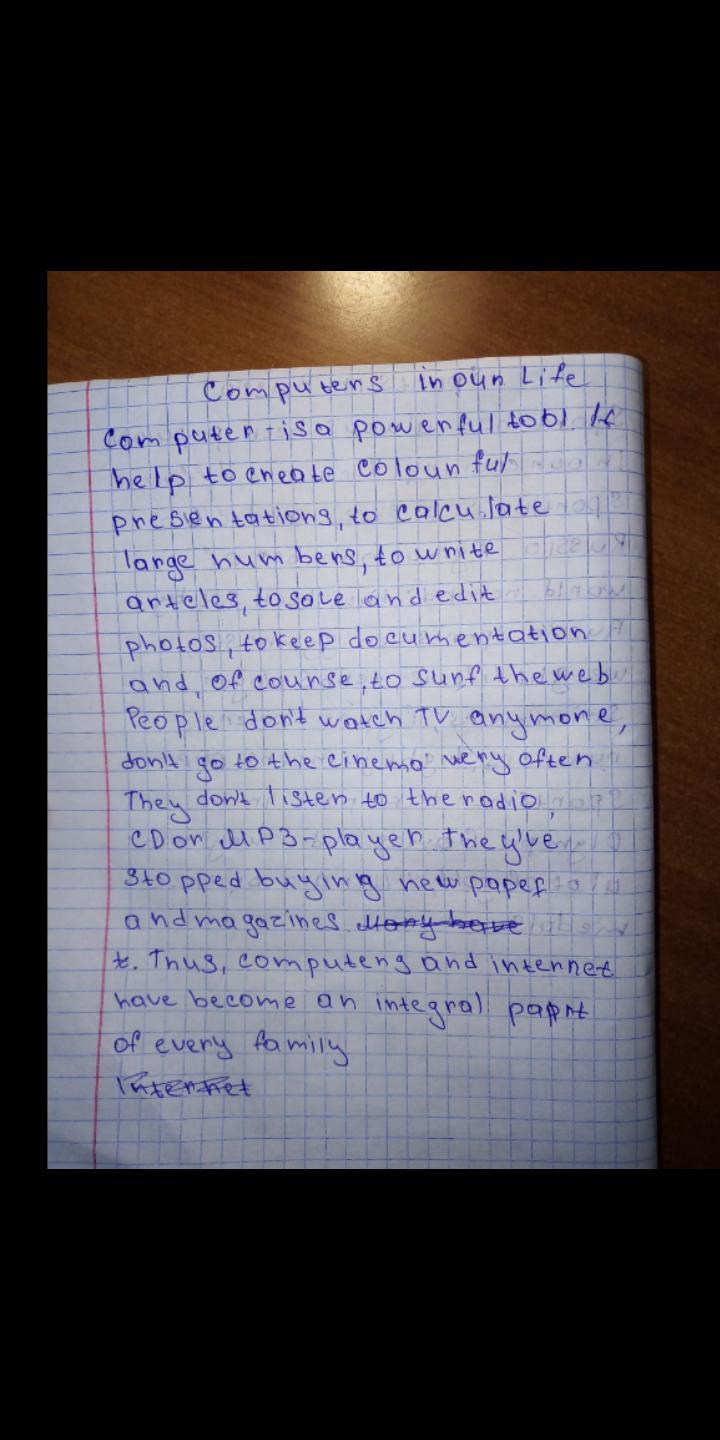 Computers in our Life
Computer - is a powerful tool. It
help to create colourful
presentations, to calculate
large numbers, to write
articles, to save and edit
photos, to keep documentation
and, of course, to surf the web
People don't watch TV anymore,
don't go to the cinema very often
They don't listen to the radio,
CD or MP3-player. they've
stopped buying newpapes
and magazines. Many have
t. Thus, computers and internet
have become an integral papnt
of every family
Internet